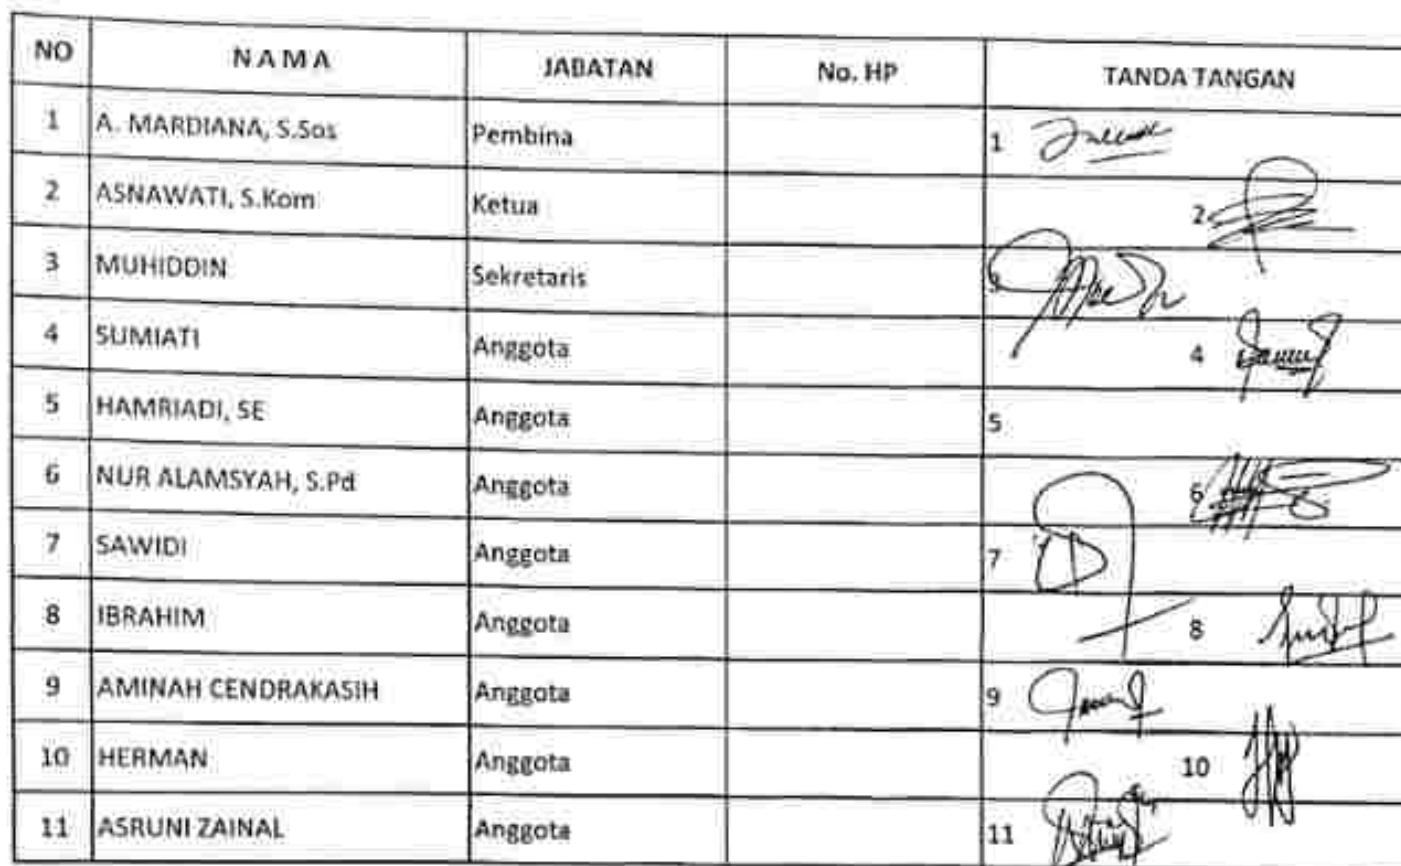 NO NAMA JABATAN No. HP TANDA TANGAN
1 A. MARDIANA, S.Sos Pembina 1
2 ASNAWATI, S.Kom Ketua 2
3 MUHIDDIN Sekretaris 3
4 SUMIATI Anggota 4
5 HAMRIADI, SE Anggota 5
6 NUR ALAMSYAH, S.Pd Anggota 6
7 SAWIDI Anggota 7
8 IBRAHIM Anggota 8
9 AMINAH CENDRAKASIH Anggota 9
10 HERMAN Anggota 10
11 ASRUNI ZAINAL Anggota 11